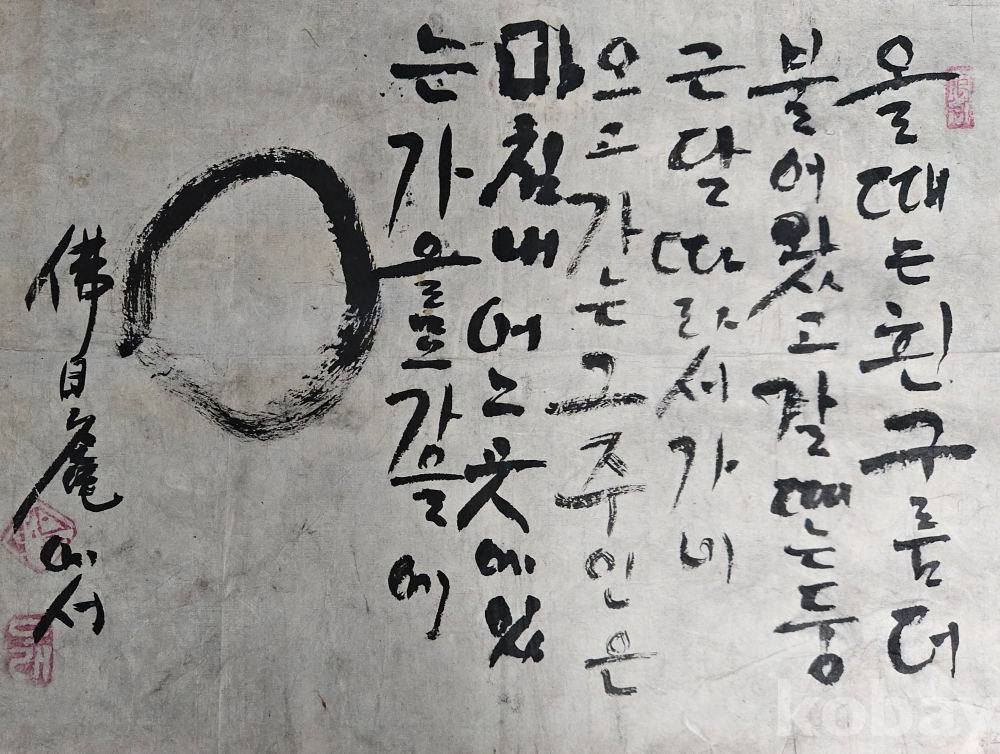 올때는흰구름더
불어왔고갈때는둥
근달따라서가네
오고가는그주인은
마침내어느곳에있
는가
佛日庵에서
kobay